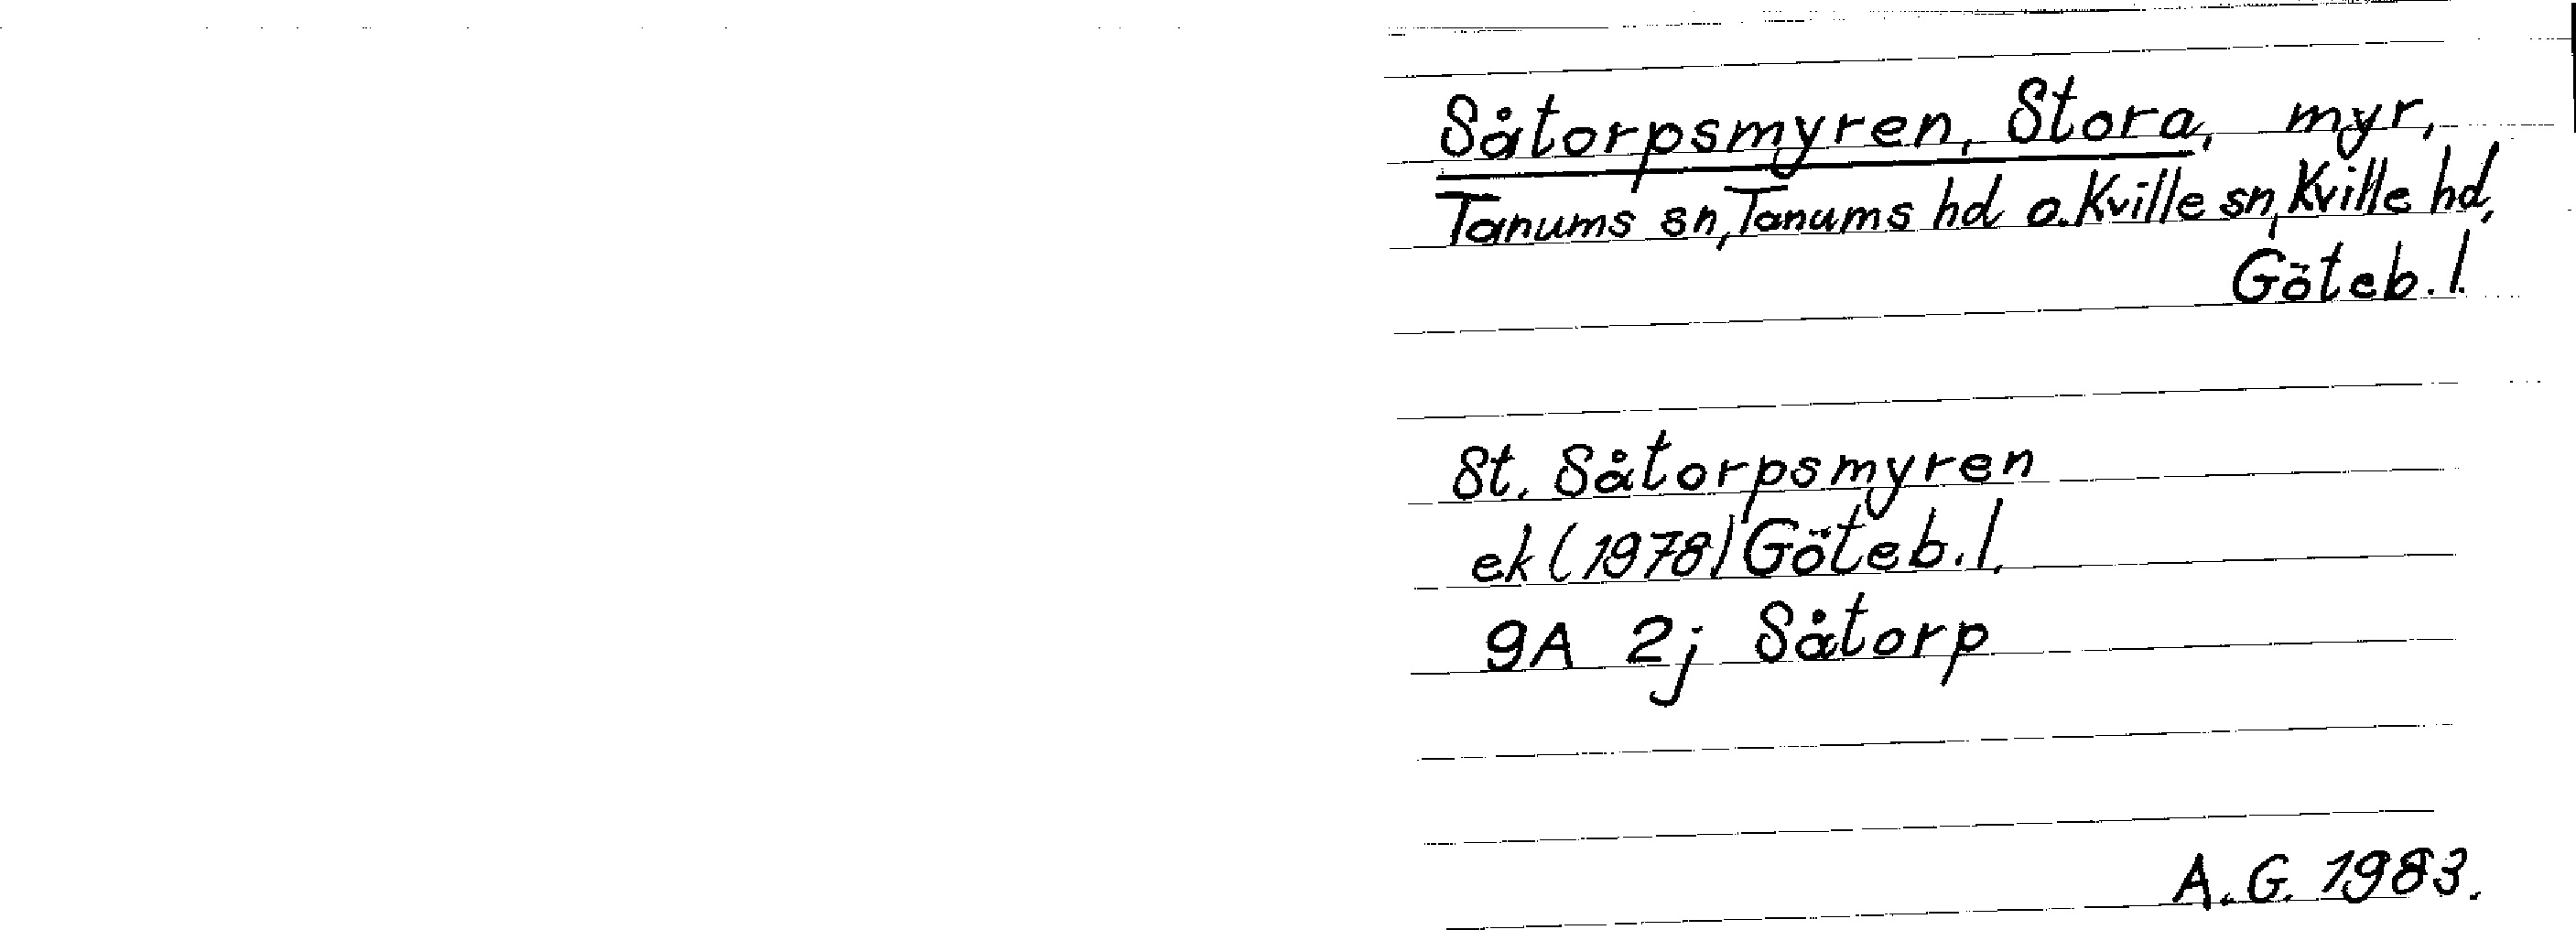 Såtorpsmyren, Stora, myr,
Tanums sn, Tanums hd o. Kville sn, Kville hd,
Göteb. l.
St. Såtorpsmyren
ek (1978) Göteb. l.
9A 2j Såtorp
A. G. 1983.